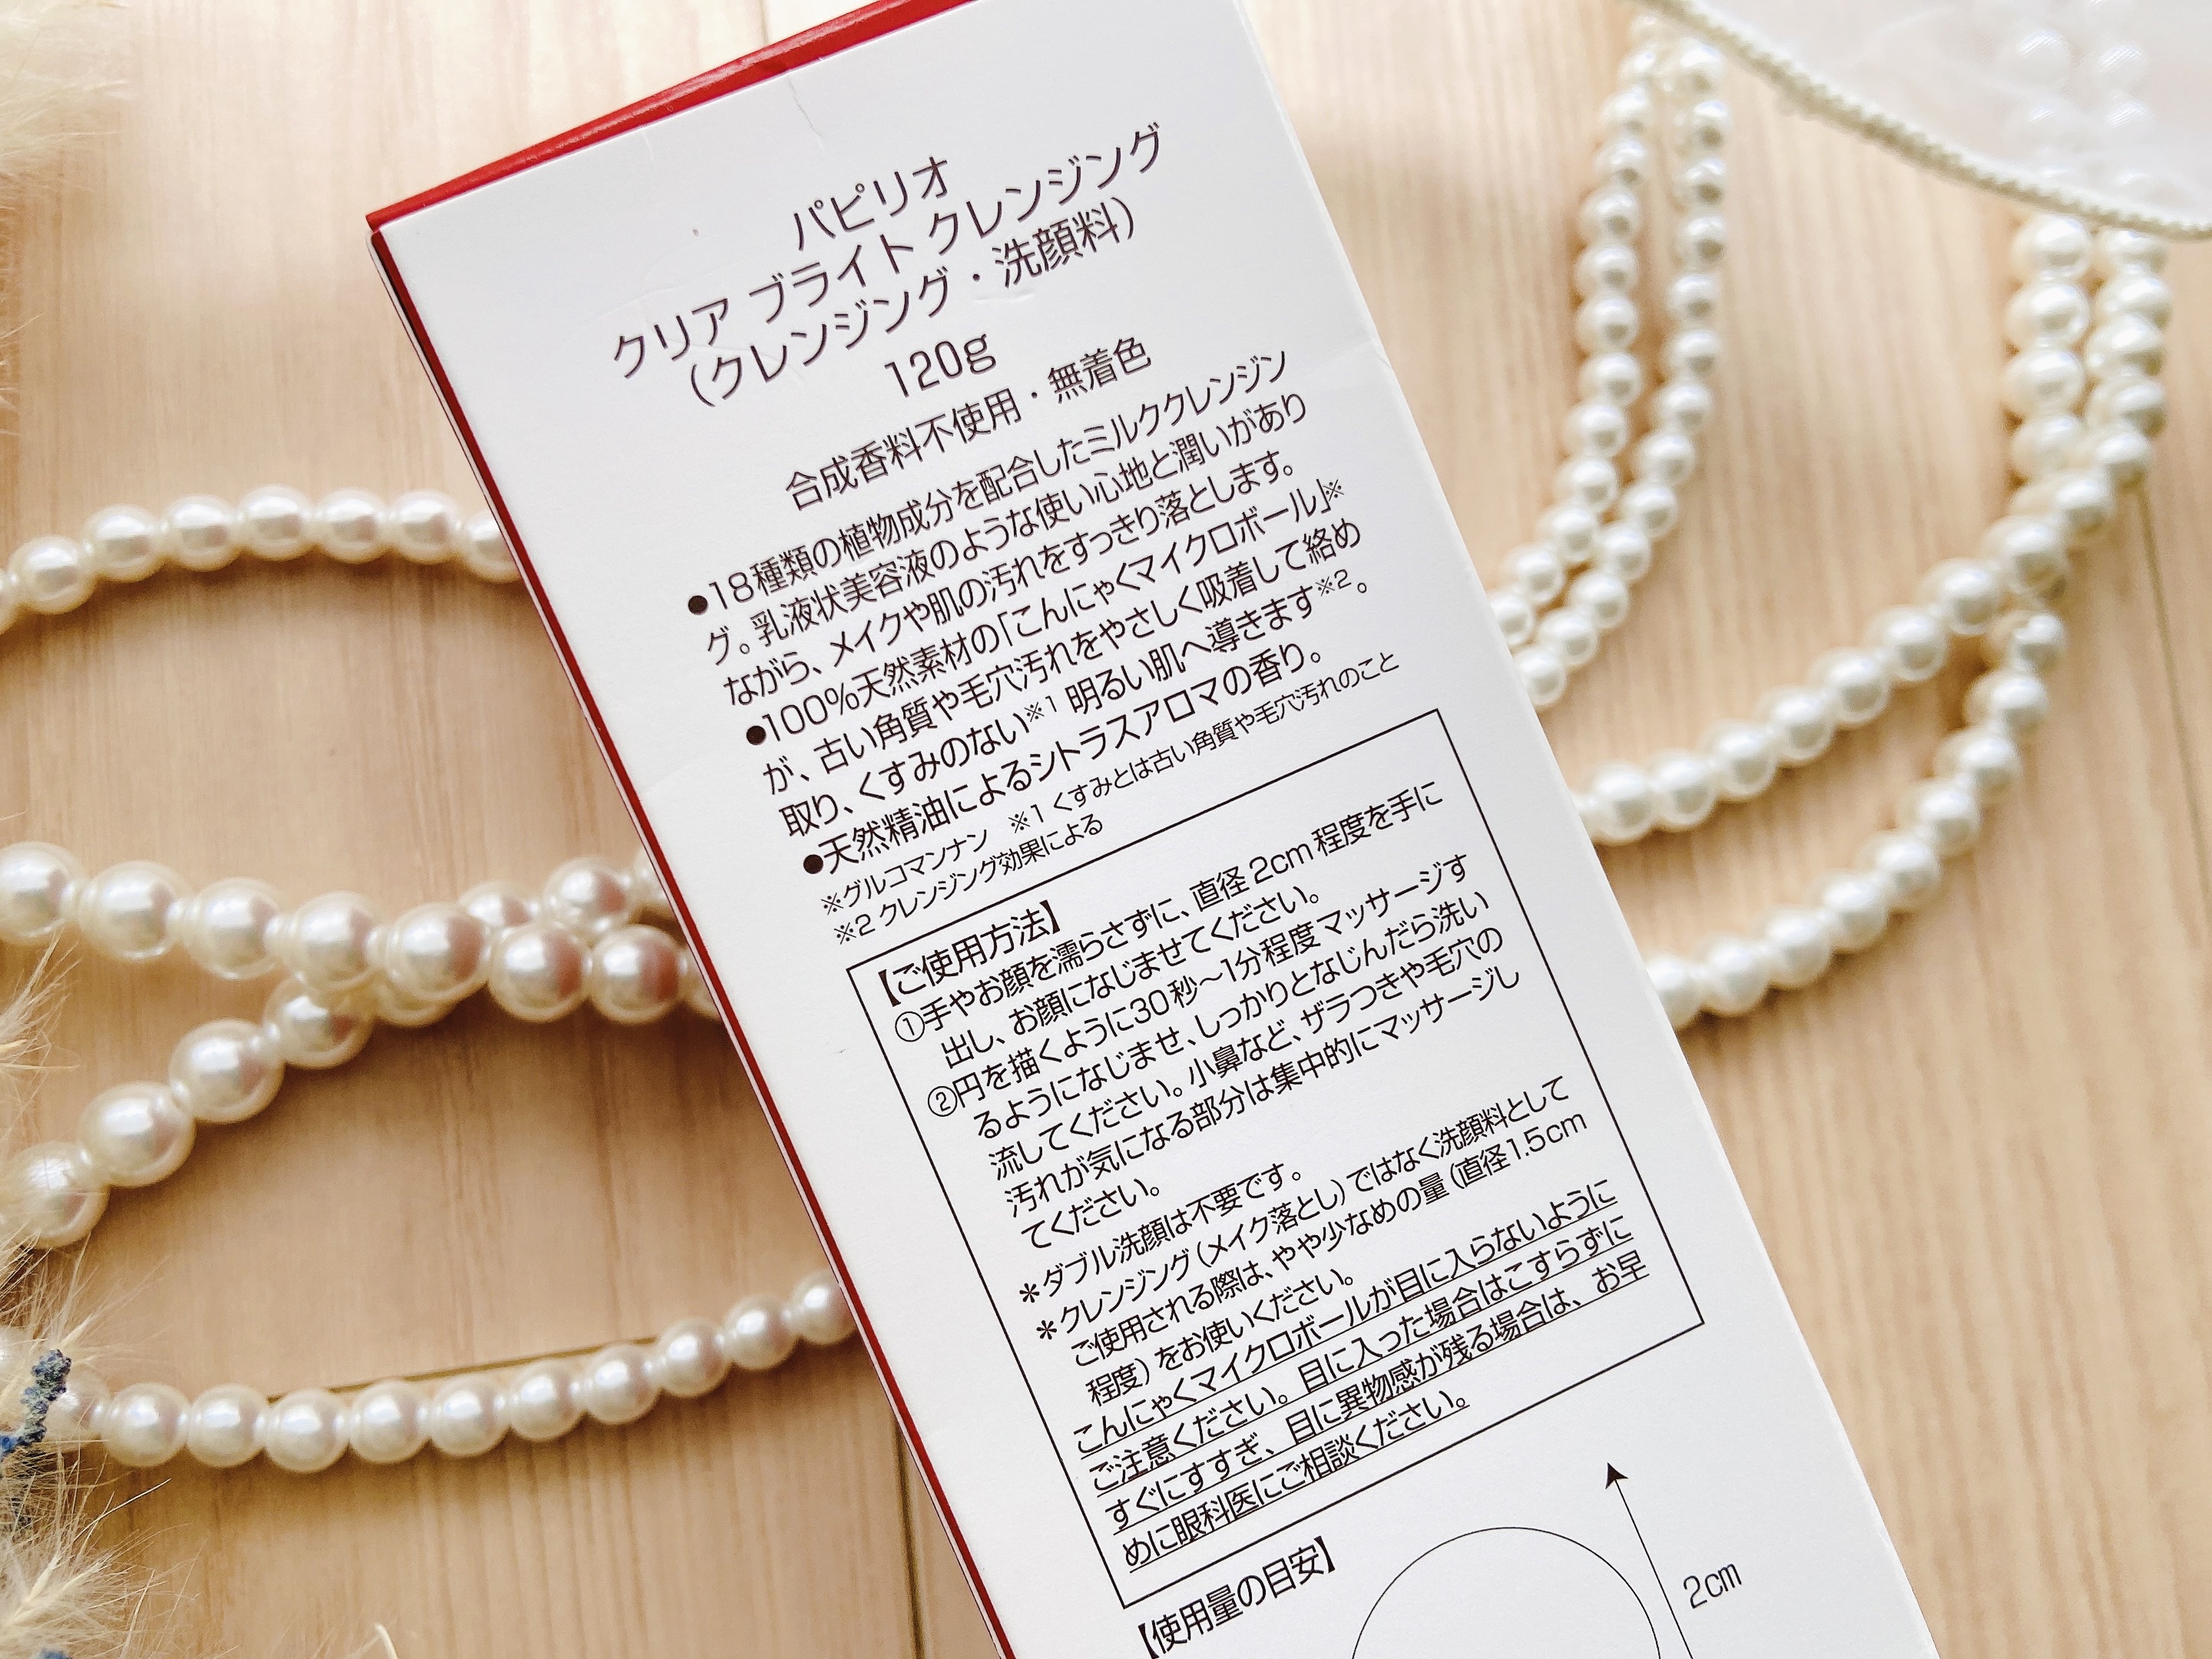 パピリオ
クリア ブライト クレンジング
（クレンジング・洗顔料）
120g
合成香料不使用・無着色
●18種類の植物成分を配合したミルククレンジン
グ。乳液状美容液のような使い心地と潤いがあり
ながら、メイクや肌の汚れをすっきり落とします。
●100%天然素材の「こんにゃくマイクロボール」※
が、古い角質や毛穴汚れをやさしく吸着して絡め
取り、くすみのない※1 明るい肌へ導きます※2。
●天然精油によるシトラスアロマの香り。
※グルコマンナン ※1 くすみとは古い角質や毛穴汚れのこと
※2 クレンジング効果による
【ご使用方法】
①手やお顔を濡らさずに、直径2cm程度を手に
出し、お顔になじませてください。
②円を描くように30秒～1分程度マッサージす
るようになじませ、しっかりとなじんだら洗い
流してください。小鼻など、ザラつきや毛穴の
汚れが気になる部分は集中的にマッサージし
てください。
＊ダブル洗顔は不要です。
＊クレンジング（メイク落とし）ではなく洗顔料として
ご使用される際は、やや少なめの量（直径1.5cm
程度）をお使いください。
こんにゃくマイクロボールが目に入らないように
ご注意ください。目に入った場合はこすらずに
すぐにすすぎ、目に異物感が残る場合は、お早
めに眼科医にご相談ください。
【使用量の目安】
2cm